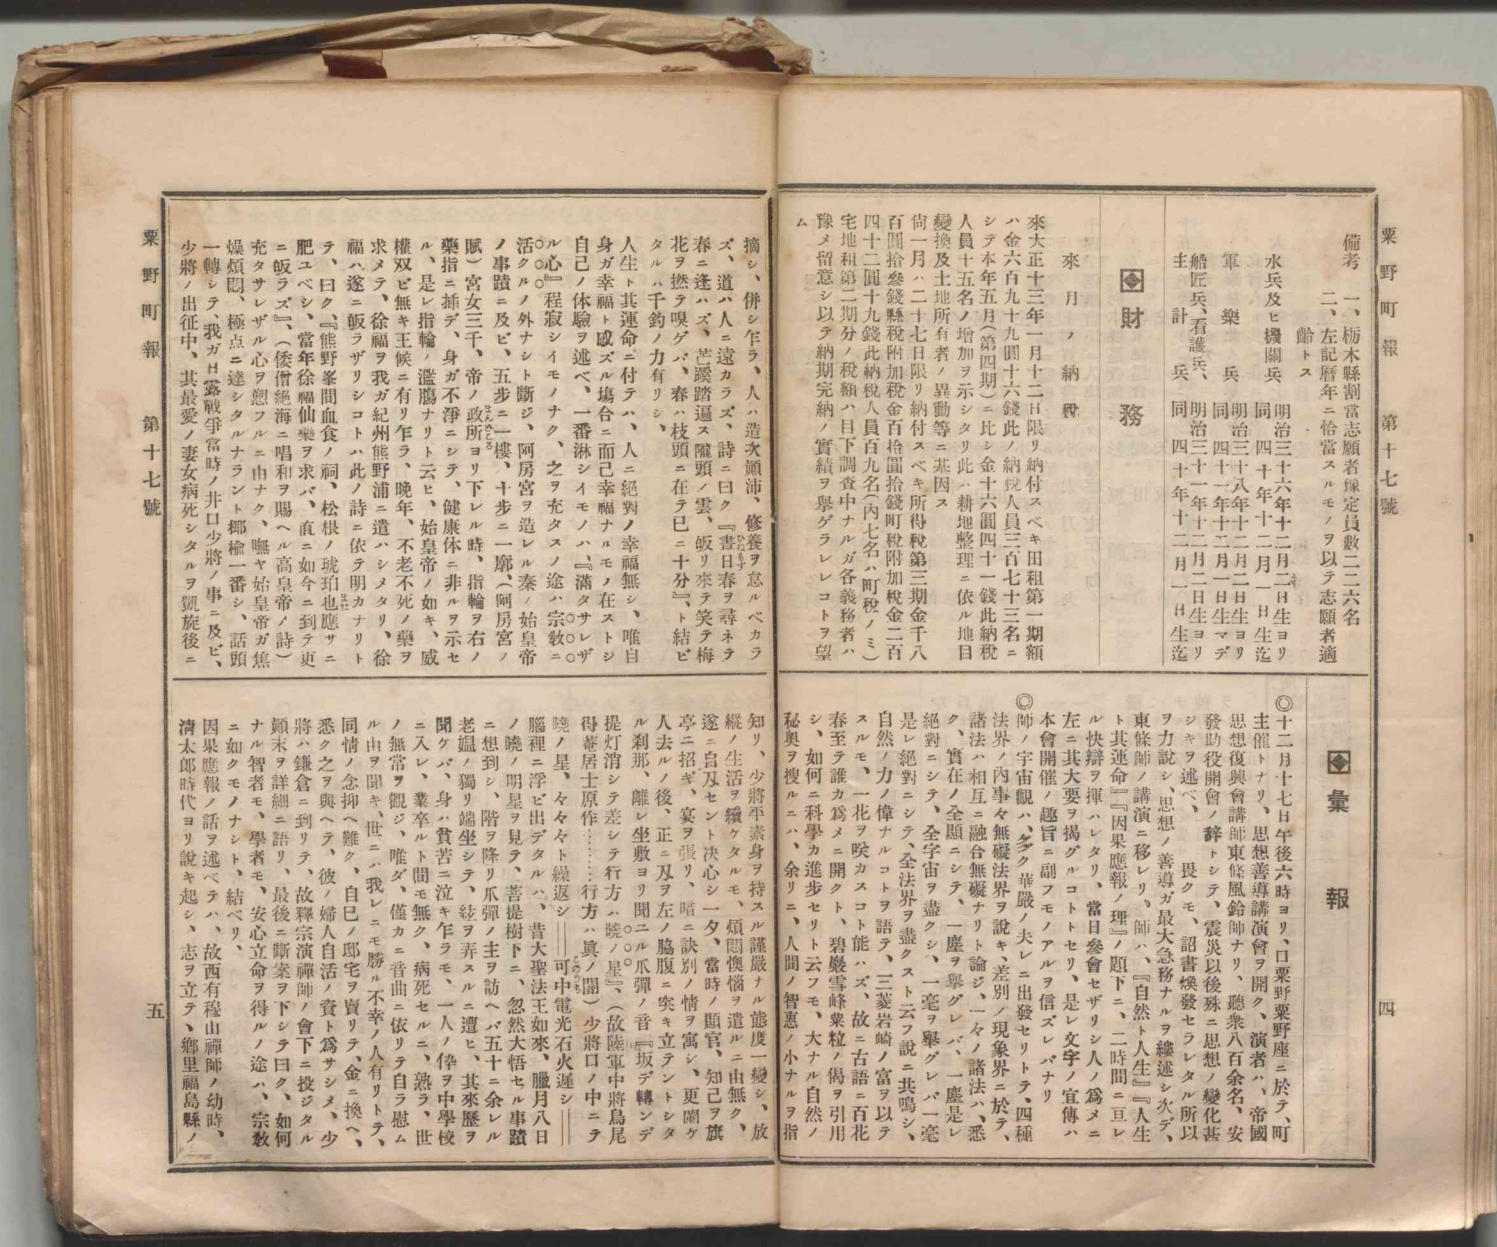 粟野町報　第十七號
四
備考　一、栃木縣割當志願者豫定員數二二六名
二、左記暦年ニ恰當スルモノヲ以テ志願者適
齡トス
水兵及ヒ機關兵　明治三十六年十二月二日生ヨリ
同　四十年十二月一日生迄
軍樂兵　明治三十八年十二月二日生ヨリ
同　四十一年十二月一日生マデ
船匠兵、看護兵、　明治三十一年十二月二日生ヨリ
主計兵　同　四十年十二月一日生迄
財務
來月ノ納稅
來大正十三年一月十二日限リ納付スベキ田租第一期額
ハ金六百九十九圓十六錢此ノ納稅人員三百七十三名ニ
シテ本年五月(第四期)ニ比シ金十六圓四十一錢此納稅
人員十五名ノ增加ヲ示シタリ此ハ耕地整理ニ依ル地目
變換及土地所有者ノ異動等ニ基因ス
尙一月ハ二十七日限リ納付スベキ所得稅第三期金千八
百圓拾參錢縣稅附加稅金百拾圓拾錢町稅附加稅金二百
四十二圓十九錢此納稅人員百九名(內七名ハ町稅ノミ)
宅地租第二期分ノ稅額ハ目下調査中ナルガ各義務者ハ
豫メ留意シ以テ納期完納ノ實績ヲ擧ゲラレレコトヲ望
ム
彙報
◎十二月十七日午後六時ヨリ、口粟野粟野座ニ於テ、町
主催トナリ、思想善導講演會ヲ開ク、演者ハ、帝國
思想復興會講師東條風鈴師ナリ、聽衆八百余名、安
發助役開會ノ辭トシテ、震災以後殊ニ思想ノ變化甚
シキヲ述ベ、　畏クモ、詔書煥發セラレタル所以
ヲ力說シ、思想ノ善導ガ最大急務ナルヲ縷述シ次デ、
東條師ノ講演ニ移レリ、師ハ、『自然ト人生』『人生
ト其運命』『因果應報ノ理』ノ題下ニ、二時間ニ亘レ
ル快辯ヲ揮ハレタリ、當日參會セザリシ人ノ爲メニ
左ニ其大要ヲ揭グルコトトセリ、是レ文字ノ宣傳ハ
本會開催ノ趣旨ニ副フモノアルヲ信ズレバナリ
◎師ノ宇宙觀ハ、多ク華嚴ノ夫レニ出發セリトテ、四種
法界ノ內事々無礙法界ヲ說キ、差別ノ現象界ニ於テ、
諸法ハ相互ニ融合無礙ナリト論ジ、一々ノ諸法ハ、悉
ク、實在ノ全顯ニシテ、一塵ヲ擧グレバ、一塵是レ
絕對ニシテ、全宇宙ヲ盡クシ、一毫ヲ擧グレバ一毫
是レ絕對ニシテ、全法界ヲ盡クスト云フ說ニ共鳴シ、
自然ノ力ノ偉ナルコトヲ語テ、三菱岩崎ノ富ヲ以テ
スルモ、一花ヲ咲カスコト能ハズ、故ニ古語ニ百花
春至テ誰カ爲メニ開クト、碧巖雪峰粟粒ノ偈ヲ引用
シ、如何ニ科學カ進步セリト云フモ、大ナル自然ノ
秘奥ヲ搜ルニハ、余リニ、人間ノ智惠ノ小ナルヲ指
摘シ、併シ乍ラ、人ハ造次顚沛、修養ヲ怠ルベカラ
ズ、道ハ人ニ遠カラズ、詩ニ曰ク『晝日春ヲ尋ネテ
春ニ逢ハズ、芒蹊踏遍ス隴頭ノ雲、皈リ來テ笑テ梅
花ヲ撚テ嗅ゲバ、春ハ枝頭ニ在テ已ニ十分』、ト結ビ
タルハ千鈞ノ力有リシ、
人生ト其運命ニ付テハ、人ニ絕對ノ幸福無シ、唯自
身ガ幸福ト感ズル場合ニ而己幸福ナルモノ在ストシ
自己ノ体驗ヲ述ベ、一番淋シイモノハ、『滿タサレザ
ル心』程寂シイモノナク、之ヲ充タスノ途ハ宗敎ニ
活クルノ外ナシト斷ジ、阿房宮ヲ造レル秦ノ始皇帝
ノ事蹟ニ及ビ、五步ニ一樓、十步ニ一廓、(阿房宮ノ
賦)宮女三千、帝ノ政所ヨリ下レル時、指輪ヲ右ノ
藥指ニ揷デ、身ガ不淨ニシテ、健康体ニ非ルヲ示セ
ル、是レ指輪ノ濫觴ナリト云ヒ、始皇帝ノ如キ、威
權双ビ無キ王候ニ有リ乍ラ、晩年、不老不死ノ藥ヲ
求メテ、徐福ヲ我ガ紀州熊野浦ニ遣ハシメタリ、徐
福ハ遂ニ皈ラザリシコトハ此ノ詩ニ依テ明カナリト
テ、曰ク、『熊野峯間血食ノ祠、松根ノ琥珀也應サニ
肥ユベシ、當年徐福仙藥ヲ求バ、直ニ如今ニ到テ更
ニ皈ラズ』、(倭僧絕海ニ唱和ヲ賜ヘル高皇帝ノ詩)
充タサレザル心ヲ愬フルニ由ナク、嘸ヤ始皇帝ガ焦
燥煩悶、極点ニ達シタルナラント揶揄一番シ、話頭
一轉シテ、我ガ日露戰爭當時ノ井口少將ノ事ニ及ビ、
少將ノ出征中、其最愛ノ妻女病死シタルヲ凱旋後ニ
知リ、少將平素身ヲ持スル謹嚴ナル態度一變シ、放
縱ノ生活ヲ續ケタルモ、煩悶懊惱ヲ遣ルニ由無ク、
遂ニ自刄セント決心シ一夕、當時ノ顯官、知己ヲ旗
亭ニ招ギ、宴ヲ張リ、暗ニ訣別ノ情ヲ寓シ、更闌ケ
人去ルノ後、正ニ刄ヲ左ノ脇腹ニ突キ立テントシタ
ル刹那、離レ坐敷ヨリ聞ユル爪彈ノ音『坂デ轉ンデ
提灯消シテ差シテ行方ハ曉ノ星』、(故陸軍中將鳥尾
得菴居士原作………行方ハ眞ノ闇)少將口ノ中ニテ
曉ノ星、々々々ト繰返シ――可中電光石火遲シ――
腦裡ニ浮ビ出デタルハ、昔大聖法王如來、臘月八日
ノ曉ノ明星ヲ見テ、菩提樹下ニ、忽然大悟セル事蹟
ニ想到シ、階ヲ降リ爪彈ノ主ヲ訪ヘバ五十ニ余レル
老媼ノ獨リ端坐シテ、絃ヲ弄スルニ遭ヒ、其來歷ヲ
聞ケバ、身ハ貧苦ニ泣キ乍ラモ、一人ノ伜ヲ中學校
ニ入レ、業卒ルト間モ無ク、病死セルニ、熟ラ、世
ノ無常ヲ觀ジ、唯ダ、僅カニ音曲ニ依リテ自ラ慰ム
ル由ヲ聞キ、世ニハ我レニモ勝ル不幸ノ人有リトテ、
同情ノ念抑ヘ難ク、自已ノ邸宅ヲ賣リテ、金ニ換ヘ、
悉ク之ヲ與ヘテ、彼ノ婦人自活ノ資ト爲サシメ、少
將ハ鎌倉ニ到リテ、故釋宗演禪師ノ會下ニ投ジタル
顚末ヲ詳細ニ語リ、最後ニ斷案ヲ下シテ曰ク、如何
ナル智者モ、學者モ、安心立命ヲ得ルノ途ハ、宗敎
ニ如クモノナシト、結ベリ、
因果應報ノ話ヲ述ベテハ、故西有穆山禪師ノ幼時、
淸太郎時代ヨリ說キ起シ、志ヲ立テ、鄕里福島縣ノ
粟野町報　第十七號
五